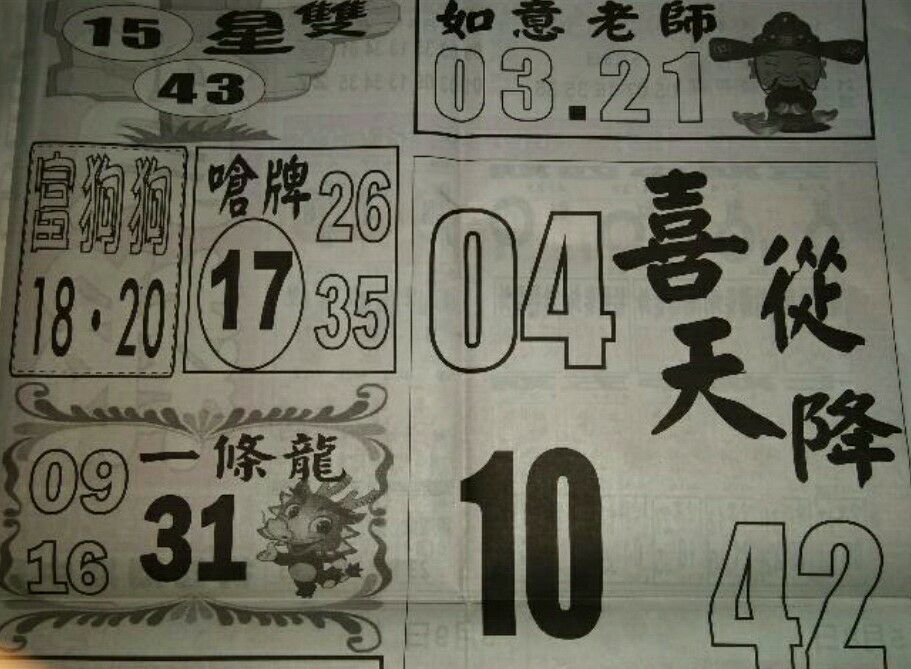 15 雙星
43
如意老師
03.21
富狗狗
18.20
嗆牌 26
17
35
04 喜從
天降
10
42
09 一條龍
31
16